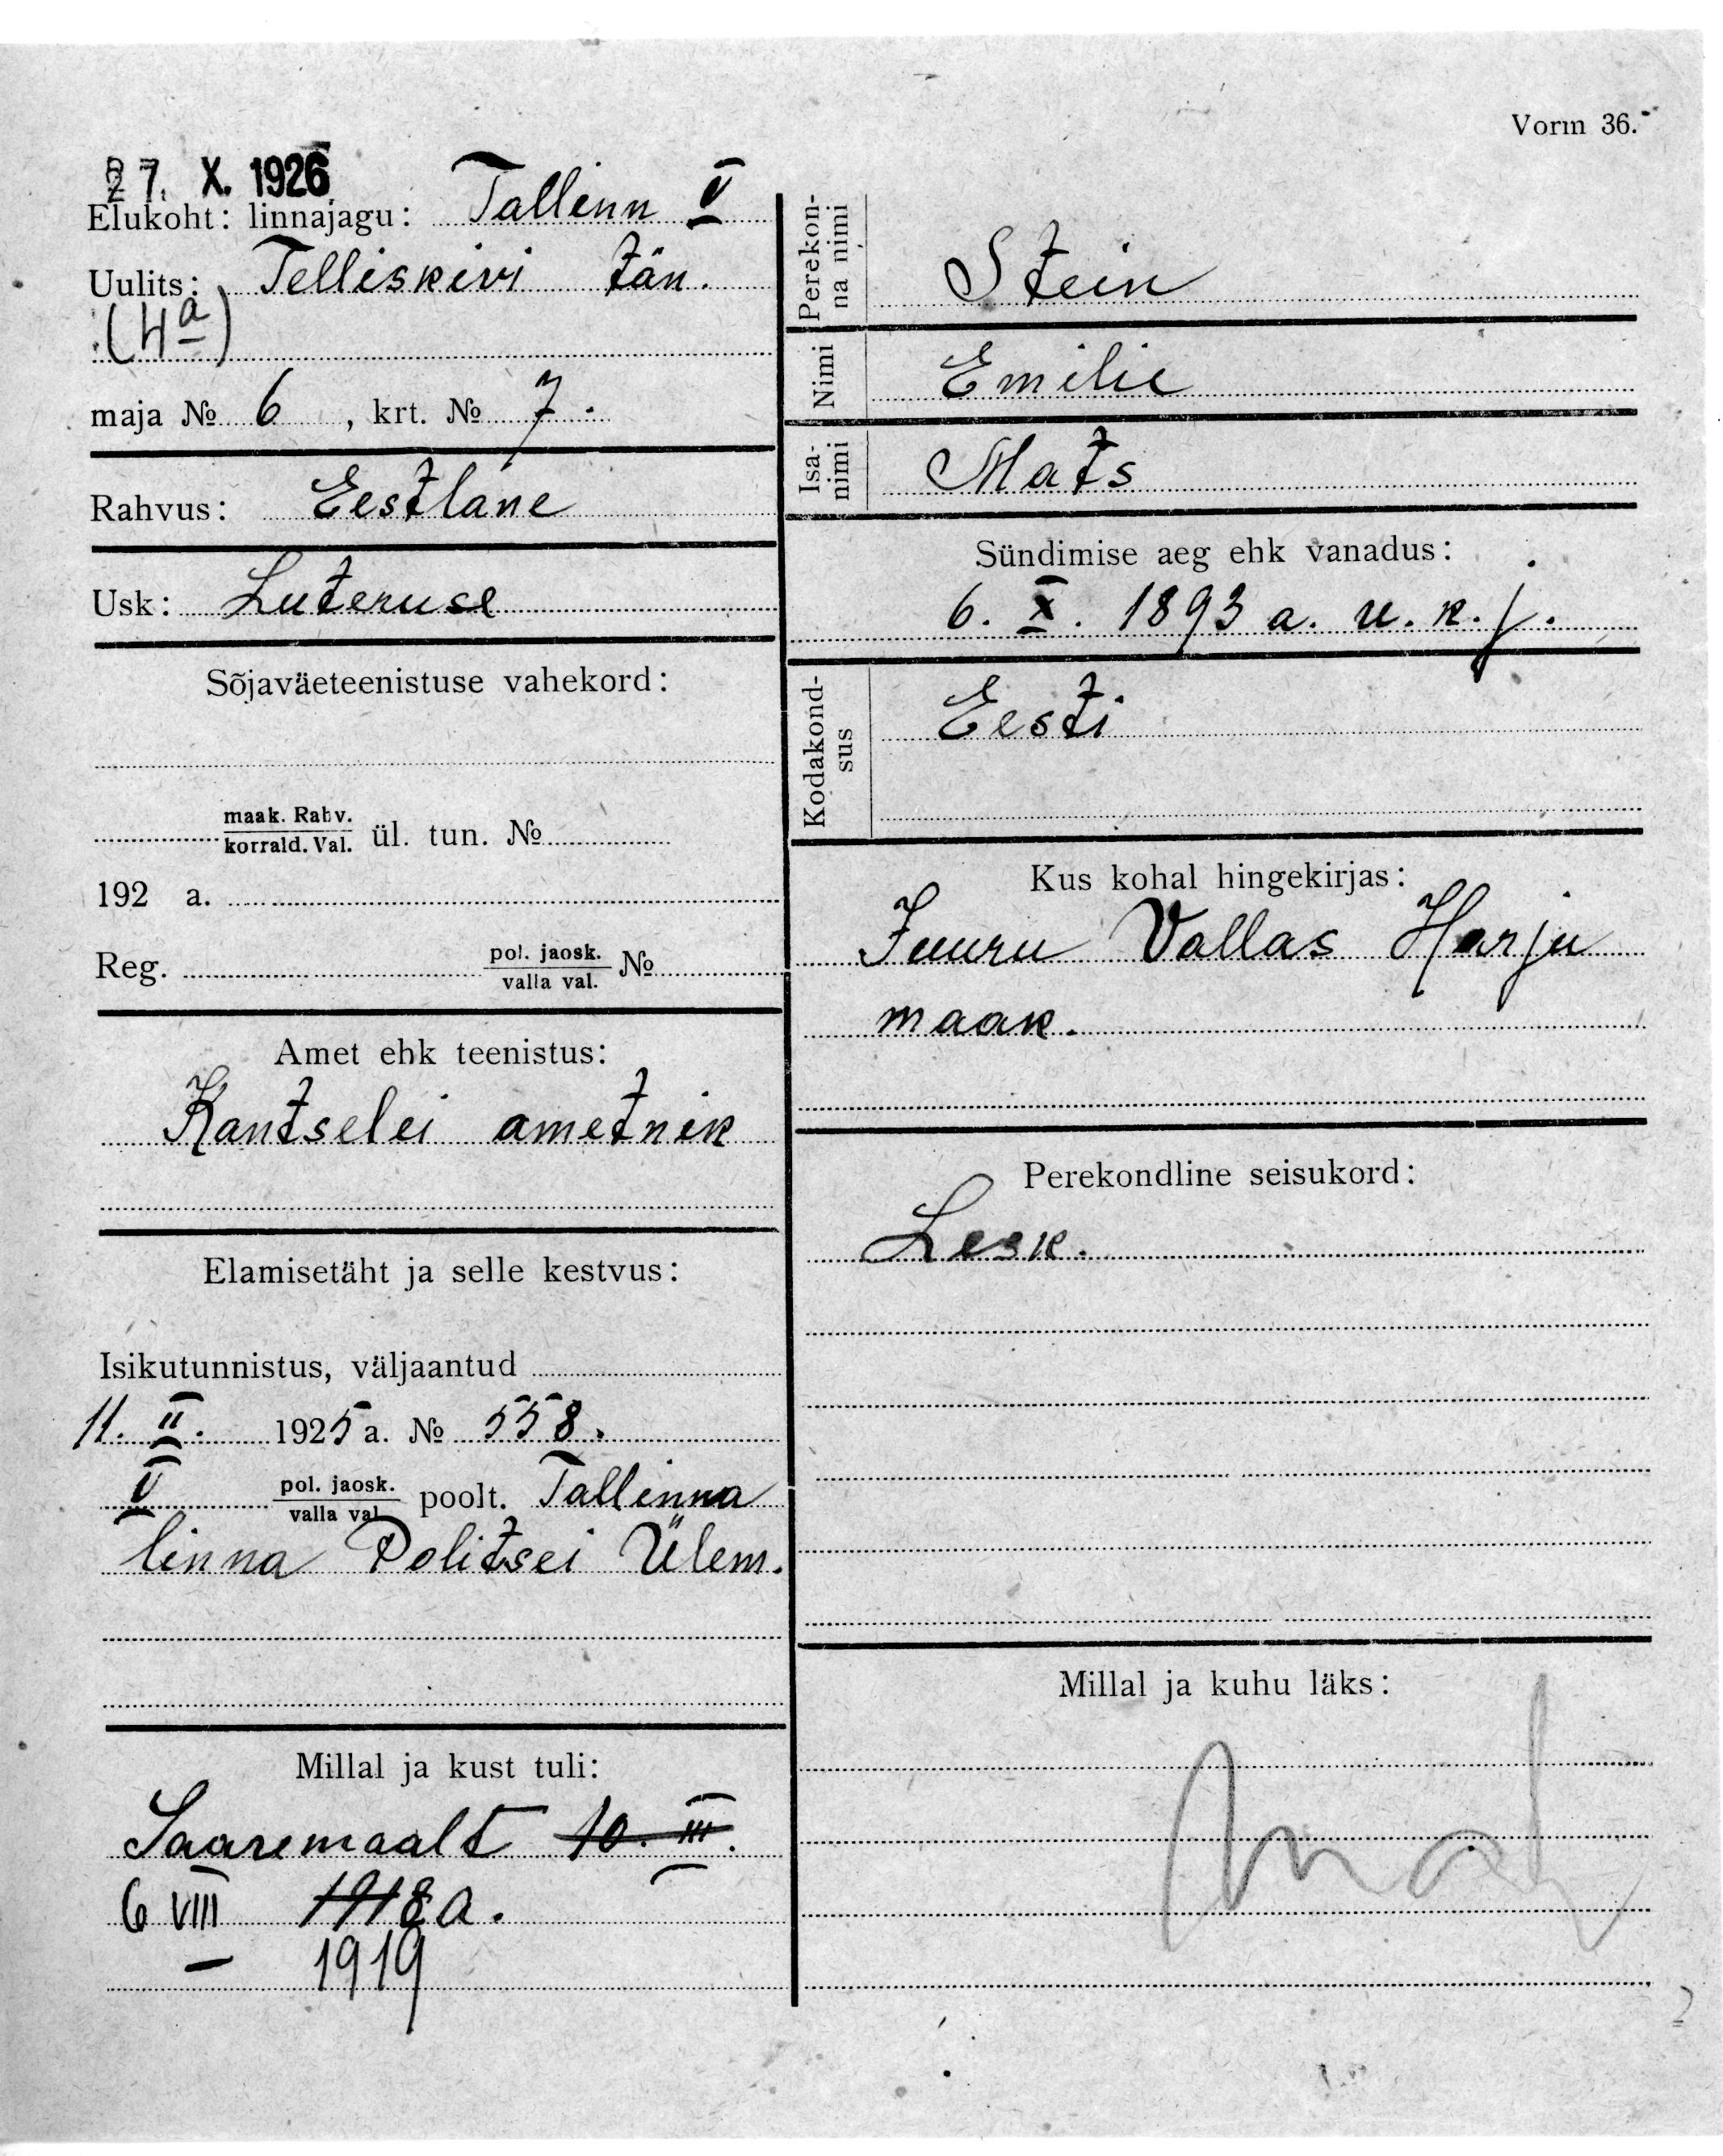 Vorm 36.
27. X. 1926
Elukoht: linnajagu: Tallinn V
Uulits: Telliskivi tän.
(4a)
maja № 6, krt. № 7.
Rahvus: Eestlane
Usk: Luteruse
Sõjaväeteenistuse vahekord:
maak. Rahv.
korrald. Val. ül. tun. №
192 a.
Reg. pol. jaosk. №
valla val.
Amet ehk teenistus:
Kantselei ametnik
Elamisetäht ja selle kestvus:
Isikutunnistus, väljaantud
11. II. 1925 a. № 558.
V pol. jaosk. poolt. Tallinna
valla val.
linna Politsei Ülem.
Millal ja kust tuli:
Saaremaalt 10. III.
6 VIII 1918 a.
— 1919
Perekon-
na nimi
Stein
Nimi
Emilie
Isa-
nimi
Mats
Sündimise aeg ehk vanadus:
6. X. 1893 a. u. k. j.
Kodakond-
sus
Eesti
Kus kohal hingekirjas:
Juuru Vallas Harju
maak.
Perekondline seisukord:
Lesk.
Millal ja kuhu läks: